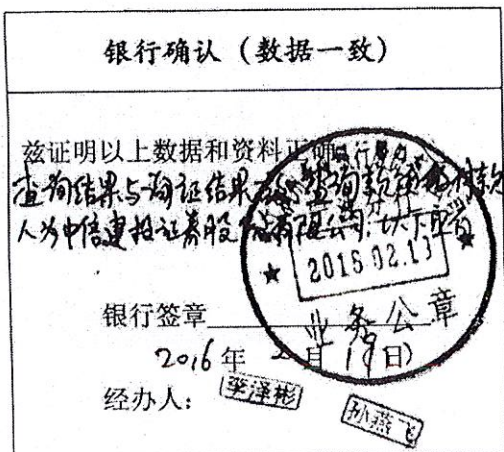 银行确认（数据一致）
兹证明以上数据和资料正确
查询结果与询证结果 查询 付款
人为中信建投证券股份有限公司，以下
2016.02.1
银行签章
业务公章
2016年2月19日）
经办人：
李泽彬
孙燕飞